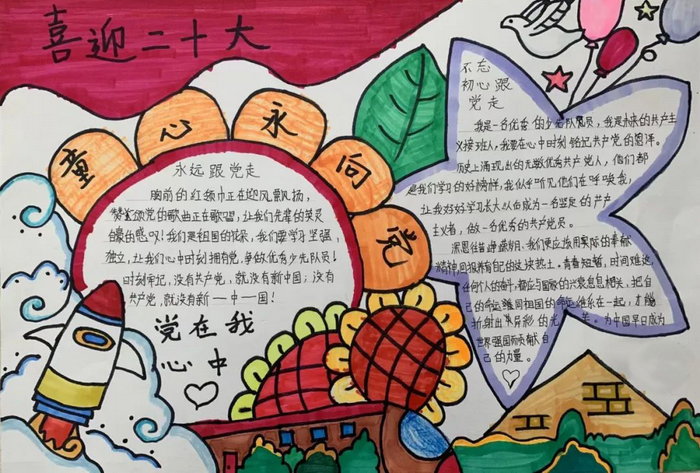 喜迎二十大
童心永向党
永远跟党走
胸前的红领巾正在迎风飘扬,
赞颂党的歌曲正在歌唱,让我们先辈的英灵
自豪的感叹!我们是祖国的花朵,我们要学习坚强,
独立,让我们心中时刻拥有党,争做优秀少先队员!
时刻牢记,没有共产党,就没有新中国;没有
共产党,就没有新一中一国!
党在我
心中
不忘
初心跟
党走
我是一名优秀的少先队员,我是未来的共产主
义接班人,我要在心中时刻铭记共产党的恩泽。
历史上涌现出的无数优秀共产党人,他们都
是我们学习的好榜样,我似乎听见他们在呼唤我,
让我好好学习长大以后成为一名坚定的共产
主义者,做一名优秀的共产党员。
我们更应该用实际的奉献
精神回报养育己的这块热土。青春短暂,时间难返,
任何人的奋斗,都应与国家的兴衰息息相关,把自
己的命运维同祖国的命运维系在一起,才能
折射出异彩的光。为中国早日成为
世界强国贡献自
己的力量。